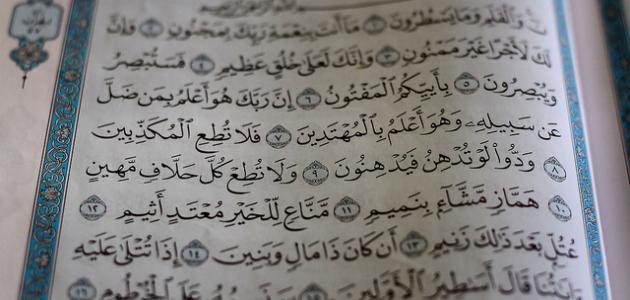 بِسْمِ ٱللَّهِ ٱلرَّحْمَـٰنِ ٱلرَّحِيمِ
نٓ وَٱلْقَلَمِ وَمَا يَسْطُرُونَ ١ مَآ أَنتَ بِنِعْمَةِ رَبِّكَ بِمَجْنُونٍ ٢ وَإِنَّ
لَكَ لَأَجْرًا غَيْرَ مَمْنُونٍ ٣ وَإِنَّكَ لَعَلَىٰ خُلُقٍ عَظِيمٍ ٤ فَسَتُبْصِرُ
وَيُبْصِرُونَ ٥ بِأَييِّكُمُ ٱلْمَفْتُونُ ٦ إِنَّ رَبَّكَ هُوَ أَعْلَمُ بِمَن ضَلَّ
عَن سَبِيلِهِۦ وَهُوَ أَعْلَمُ بِٱلْمُهْتَدِينَ ٧ فَلَا تُطِعِ ٱلْمُكَذِّبِينَ
٨ وَدُّوا۟ لَوْ تُدْهِنُ فَيُدْهِنُونَ ٩ وَلَا تُطِعْ كُلَّ حَلَّافٍ مَّهِينٍ
١٠ هَمَّازٍ مَّشَّآءٍۭ بِنَمِيمٍ ١١ مَّنَّاعٍ لِّلْخَيْرِ مُعْتَدٍ أَثِيمٍ ١٢
عُتُلٍّۭ بَعْدَ ذَٰلِكَ زَنِيمٍ ١٣ أَن كَانَ ذَا مَالٍ وَبَنِينَ ١٤ إِذَا تُتْلَىٰ عَلَيْهِ
ءَايَـٰتُنَا قَالَ أَسَـٰطِيرُ ٱلْأَوَّلِينَ ١٥ سَنَسِمُهُۥ عَلَى ٱلْخُرْطُومِ ١٦